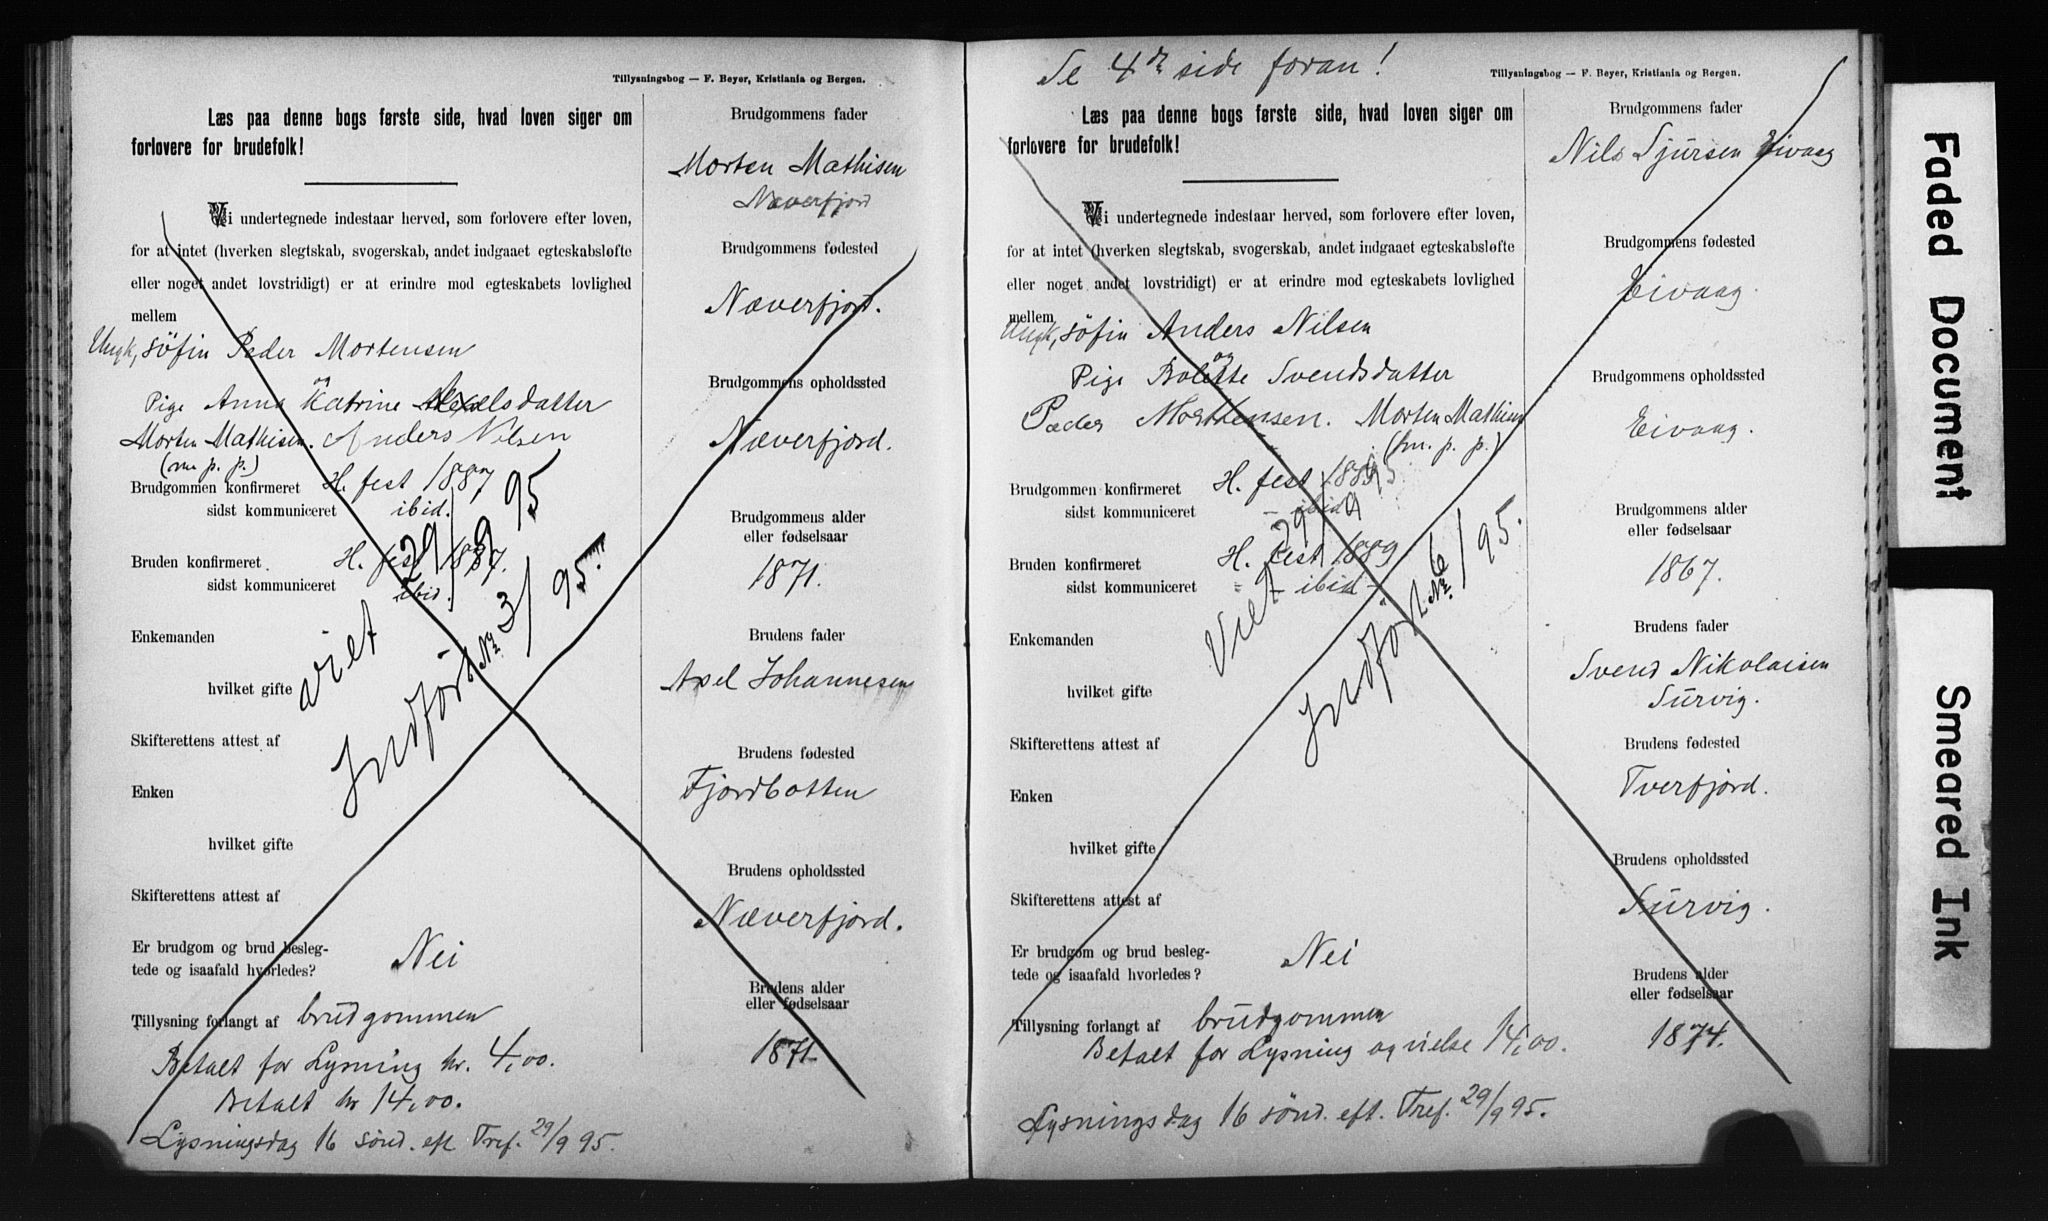 Tillysningsbog — F. Beyer, Kristiania og Bergen.
Læs paa denne bogs første side, hvad loven siger om
forlovere for brudefolk!
Vi undertegnede indestaar herved, som forlovere efter loven,
for at intet (hverken slegtskab, svogerskab, andet indgaaet egteskabsløfte
eller noget andet lovstridigt) er at erindre mod egteskabets lovlighed
mellem
Ungk, søfin Peder Mortensen
og
Pige Anna Katrine Axelsdatter
Morten Mathisen. Anders Nilsen
(m. p. p.)
Brudgommen konfirmeret H. fest 1887
sidst kommuniceret ibid.
Bruden konfirmeret H. fest 1887.
sidst kommuniceret ibid.
viet 29/9 95
Indført № 3/95.
Enkemanden
hvilket gifte
Skifterettens attest af
Enken
hvilket gifte
Skifterettens attest af
Er brudgom og brud besleg-
tede og isaafald hvorledes? Nei
Tillysning forlangt af brudgommen
Betalt for Lysning kr. 4,00.
Betalt kr 14,00.
Lysningsdag 16 sønd. eft Tref. 29/9 95.
Brudgommens fader
Morten Mathisen
Næverfjord
Brudgommens fødested
Næverfjord.
Brudgommens opholdssted
Næverfjord.
Brudgommens alder
eller fødselsaar
1871.
Brudens fader
Axel Johannesen
Brudens fødested
Fjordbotten
Brudens opholdssted
Næverfjord.
Brudens alder
eller fødselsaar
1871
Se 4de side foran!
Tillysningsbog — F. Beyer, Kristiania og Bergen.
Læs paa denne bogs første side, hvad loven siger om
forlovere for brudefolk!
Vi undertegnede indestaar herved, som forlovere efter loven,
for at intet (hverken slegtskab, svogerskab, andet indgaaet egteskabsløfte
eller noget andet lovstridigt) er at erindre mod egteskabets lovlighed
mellem
Ungk, søfin Anders Nilsen
og
Pige Bolette Svendsdatter
Peder Morttensen. Morten Mathisen
(m. p. p.)
Brudgommen konfirmeret H. fest
sidst kommuniceret - ibid
Bruden konfirmeret H. fest 1889
sidst kommuniceret - ibid -
Viet 29/9 95
Indført № 6/95.
Enkemanden
hvilket gifte
Skifterettens attest af
Enken
hvilket gifte
Skifterettens attest af
Er brudgom og brud besleg-
tede og isaafald hvorledes? Nei
Tillysning forlangt af brudgommen
Betalt for Lysning og vielse 14,00.
Lysningsdag 16 sønd. eft. Tref. 29/9 95.
Brudgommens fader
Nils Sjursen Eivaag
Brudgommens fødested
Eivaag.
Brudgommens opholdssted
Eivaag.
Brudgommens alder
eller fødselsaar
1867.
Brudens fader
Svend Nikolaisen
Survig.
Brudens fødested
Tverfjord.
Brudens opholdssted
Survig.
Brudens alder
eller fødselsaar
1874.
Faded Document
Smeared Ink